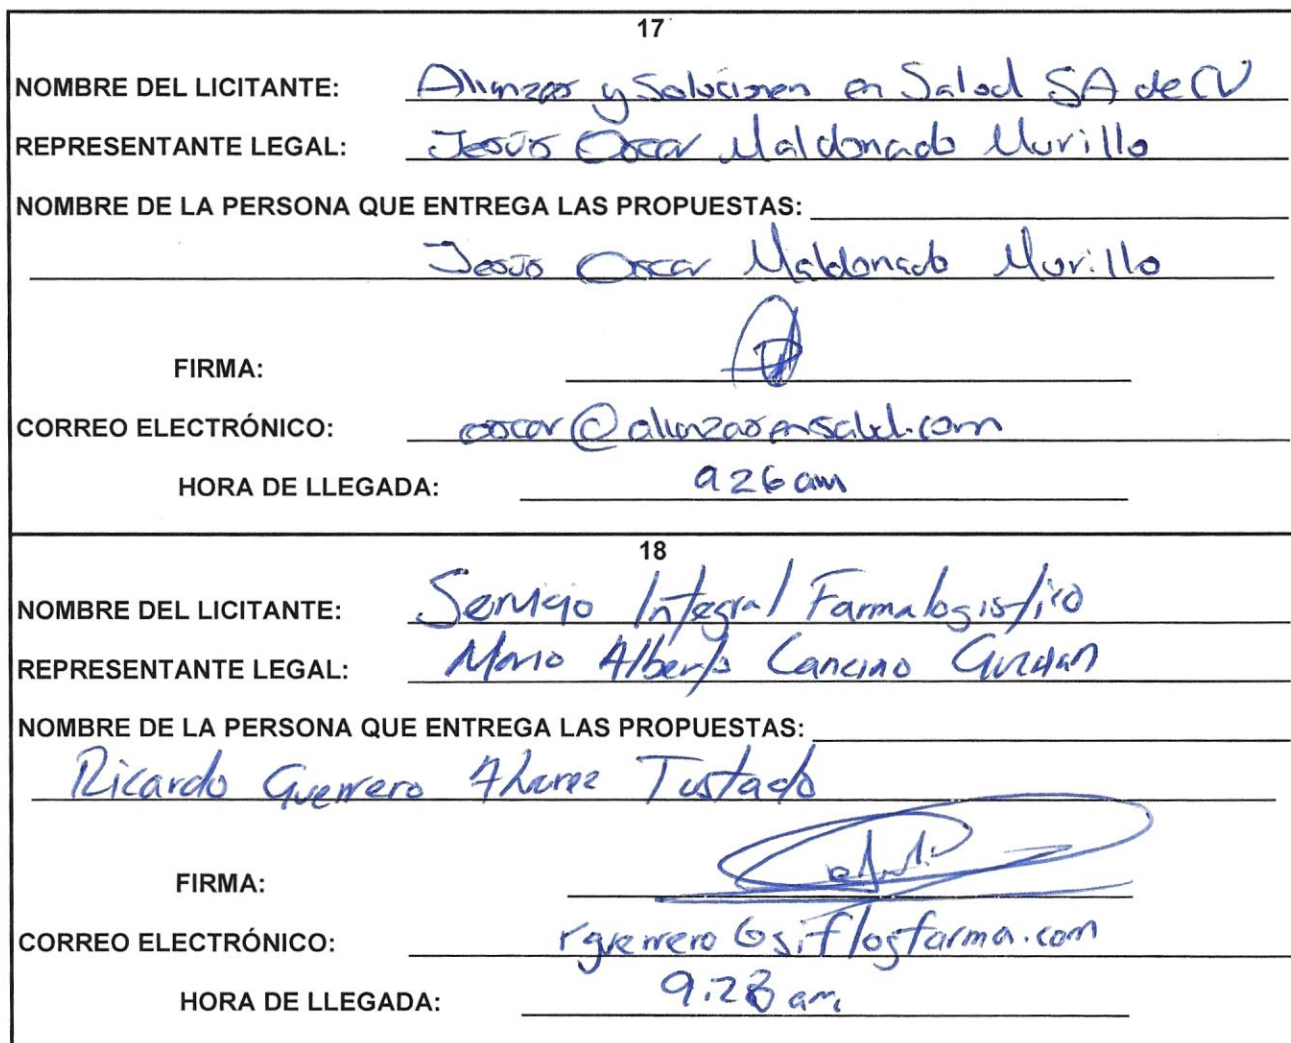 17
NOMBRE DEL LICITANTE: Alianzas y Soluciones en Salud SA de CV
REPRESENTANTE LEGAL: Jesús Oscar Maldonado Murillo
NOMBRE DE LA PERSONA QUE ENTREGA LAS PROPUESTAS:
Jesús Oscar Maldonado Murillo
FIRMA:
CORREO ELECTRÓNICO: oscar@alianzasensalud.com
HORA DE LLEGADA: 9 26 am
18
NOMBRE DEL LICITANTE: Servicio Integral Farmalogistico
REPRESENTANTE LEGAL: Mario Alberto Cancino Guzman
NOMBRE DE LA PERSONA QUE ENTREGA LAS PROPUESTAS:
Ricardo Guerrero Alvarez Tostado
FIRMA:
CORREO ELECTRÓNICO: rguerrero@siflogfarma.com
HORA DE LLEGADA: 9:28 am